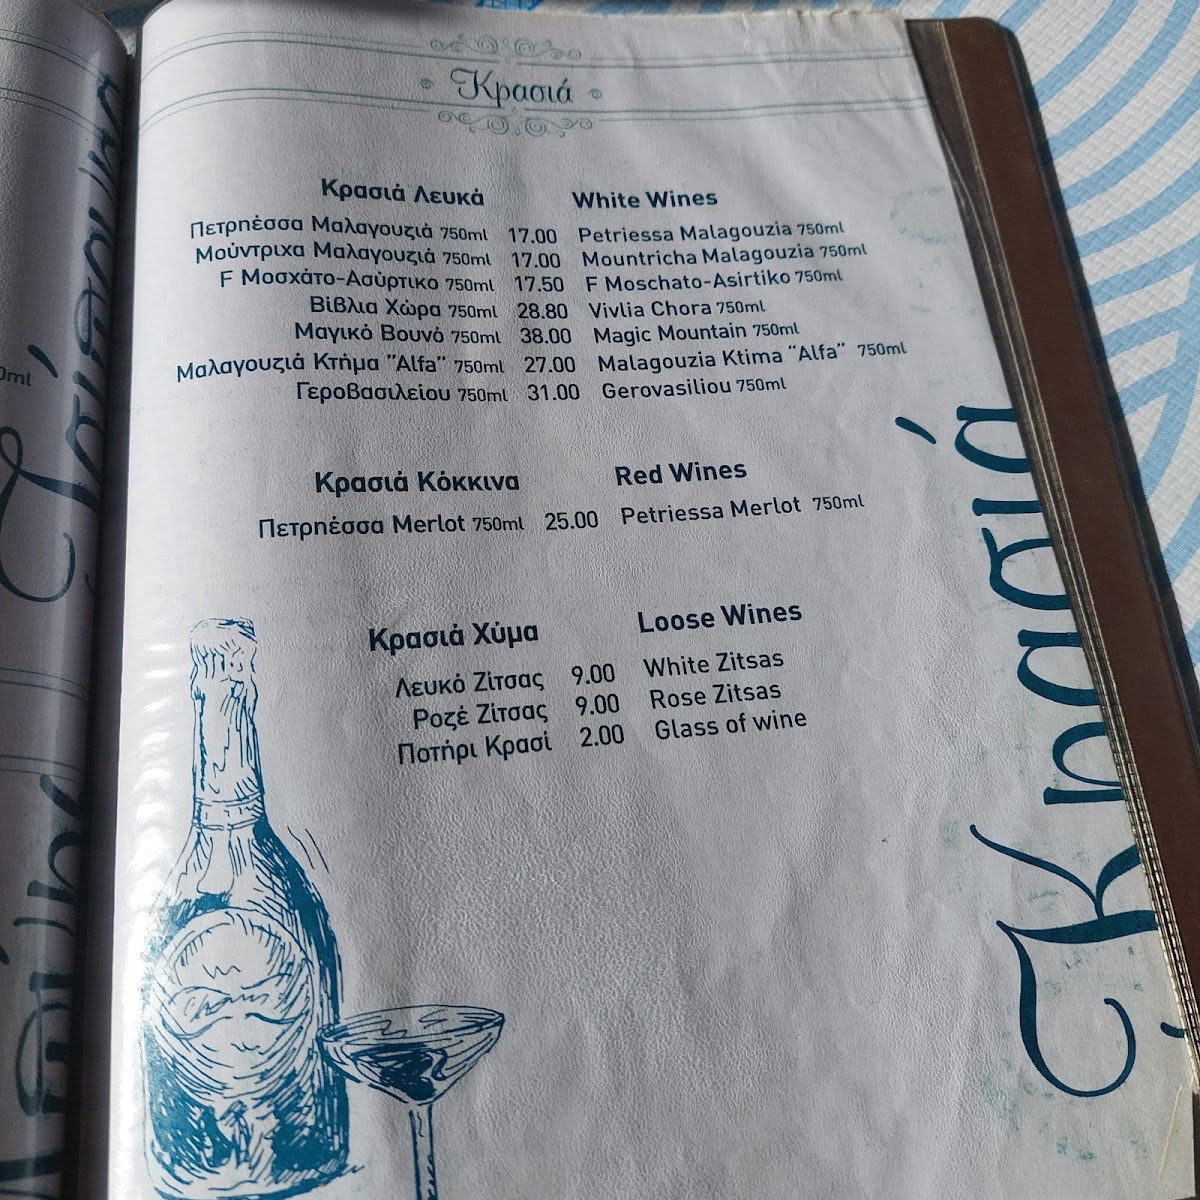 Κρασιά
Κρασιά Λευκά White Wines
Πετρηέσσα Μαλαγουζιά 750ml 17.00 Petriessa Malagouzia 750ml
Μούντριχα Μαλαγουζιά 750ml 17.00 Mountricha Malagouzia 750ml
F Μοσχάτο-Ασύρτικο 750ml 17.50 F Moschato-Asirtiko 750ml
Βίβλια Χώρα 750ml 28.80 Vivlia Chora 750ml
Μαγικό Βουνό 750ml 38.00 Magic Mountain 750ml
Μαλαγουζιά Κτήμα "Alfa" 750ml 27.00 Malagouzia Ktima "Alfa" 750ml
Γεροβασιλείου 750ml 31.00 Gerovasiliou 750ml
Κρασιά Κόκκινα Red Wines
Πετρηέσσα Merlot 750ml 25.00 Petriessa Merlot 750ml
Κρασιά Χύμα Loose Wines
Λευκό Ζίτσας 9.00 White Zitsas
Ροζέ Ζίτσας 9.00 Rose Zitsas
Ποτήρι Κρασί 2.00 Glass of wine
Κρασιά